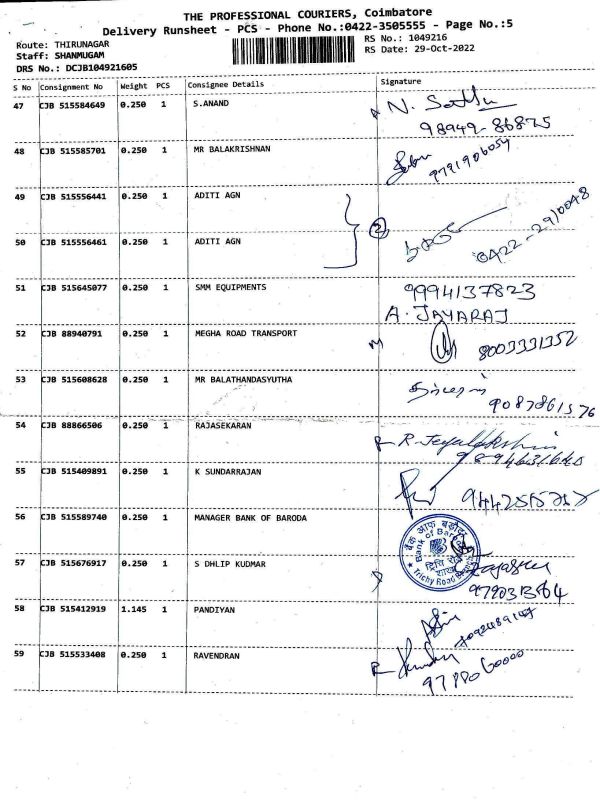 THE PROFESSIONAL COURIERS, Coimbatore
Delivery Runsheet - PCS - Phone No.:0422-3505555 - Page No.:5
Route: THIRUNAGAR RS No.: 1049216
Staff: SHANMUGAM RS Date: 29-Oct-2022
DRS No.: DCJB104921605
S No Consignment No Weight PCS Consignee Details Signature
47 CJB 515584649 0.250 1 S.ANAND
98949-86875
48 CJB 515585701 0.250 1 MR BALAKRISHNAN
9791906054
49 CJB 515556441 0.250 1 ADITI AGN
2
50 CJB 515556461 0.250 1 ADITI AGN
51 CJB 515645077 0.250 1 SMM EQUIPMENTS 9994137823
A. JAYARAJ
52 CJB 88940791 0.250 1 MEGHA ROAD TRANSPORT M 8003331352
53 CJB 515608628 0.250 1 MR BALATHANDASYUTHA
9087861576
54 CJB 88866506 0.250 1 RAJASEKARAN
R. Jeyalakshmi
55 CJB 515409891 0.250 1 K SUNDARRAJAN
56 CJB 515589740 0.250 1 MANAGER BANK OF BARODA
बैंक ऑफ़ बड़ौदा
Bank of Baroda
Trichy Road Branch
57 CJB 515676917 0.250 1 S DHLIP KUDMAR
58 CJB 515412919 1.145 1 PANDIYAN
59 CJB 515533408 0.250 1 RAVENDRAN